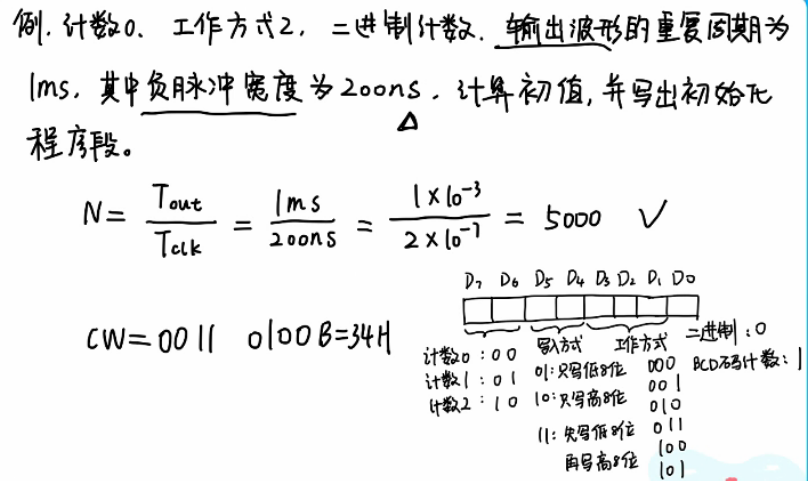 例. 计数0、工作方式2, 二进制计数. 输出波形的重复周期为
1ms, 其中负脉冲宽度为200ns. 计算初值, 并写出初始化
程序段。
N = Tout / Tclk = 1ms / 200ns = 1×10⁻³ / 2×10⁻⁷ = 5000 ✓
D₇ D₆ D₅ D₄ D₃ D₂ D₁ D₀
CW = 0011 0100B = 34H
计数0 : 00
计数1 : 01
计数2 : 10
写入方式
01: 只写低8位
10: 只写高8位
11: 先写低8位
再写高8位
工作方式
000
001
010
011
100
101
二进制 : 0
BCD码计数 : 1